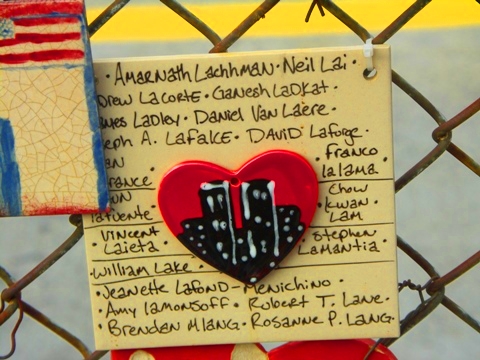 · Amarnath Lachhman · Neil Lai ·
drew LaCorte · Ganesh Ladkat ·
ames Ladley · Daniel Van Laere ·
eph A. LaFalce · David LaForge ·
an
rance
Franco
Lalama
un
Lafuente
Chow
Kwan
Lam
· Vincent
Laieta ·
· Stephen
LaMantia ·
· William Lake ·
· Jeanette LaFond-Menichino ·
· Amy Lamonsoff · Robert T. Lane ·
· Brendan M Lang · Rosanne P. Lang ·